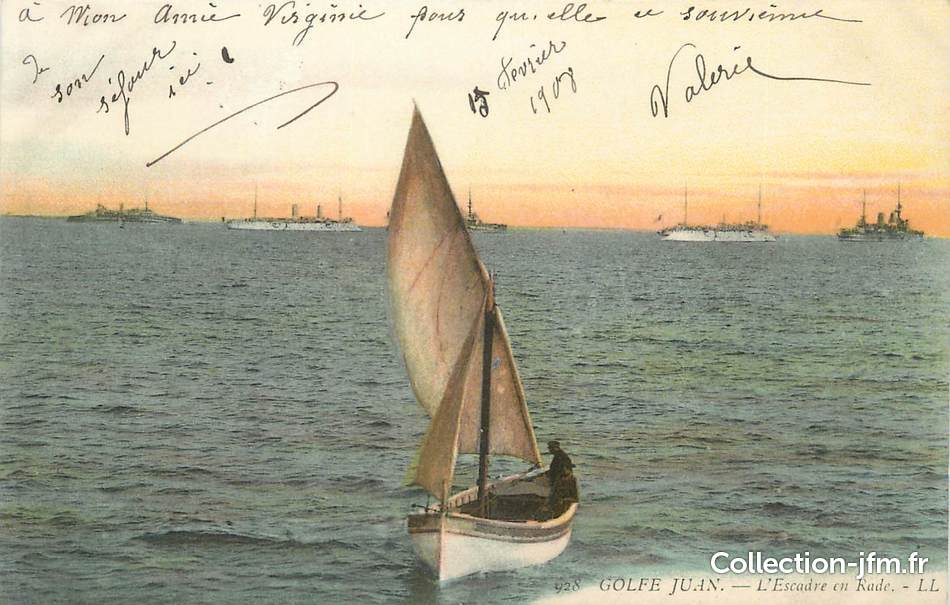 à Mon Amie Virginie pour qu'elle se souvienne
de
son
séjour
ici !
15 Fevrier
1908
Valerie
928 GOLFE JUAN. — L'Escadre en Rade. - LL
Collection-jfm.fr